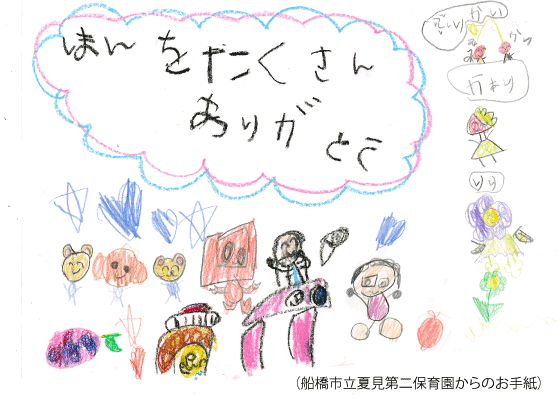 ほんをたくさん
ありがとう
かい
かまり
りり
(船橋市立夏見第二保育園からのお手紙)